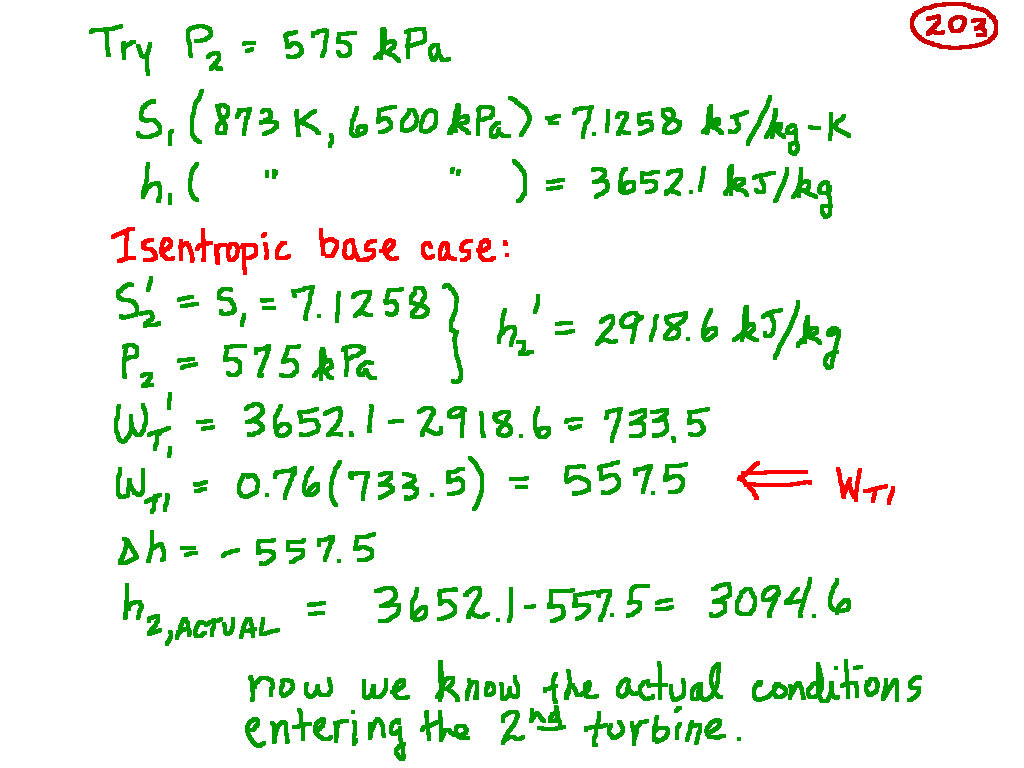 203
Try P₂ = 575 kPa
S₁ (873 K, 6500 kPa) = 7.1258 kJ/kg-K
h₁ ( " " ) = 3652.1 kJ/kg
Isentropic base case:
S₂' = S₁ = 7.1258
P₂ = 575 kPa } h₂' = 2918.6 kJ/kg
W'T₁ = 3652.1 - 2918.6 = 733.5
WT₁ = 0.76(733.5) = 557.5 ⇐ WT₁
Δh = -557.5
h₂,ACTUAL = 3652.1-557.5 = 3094.6
now we know the actual conditions
entering the 2nd turbine.